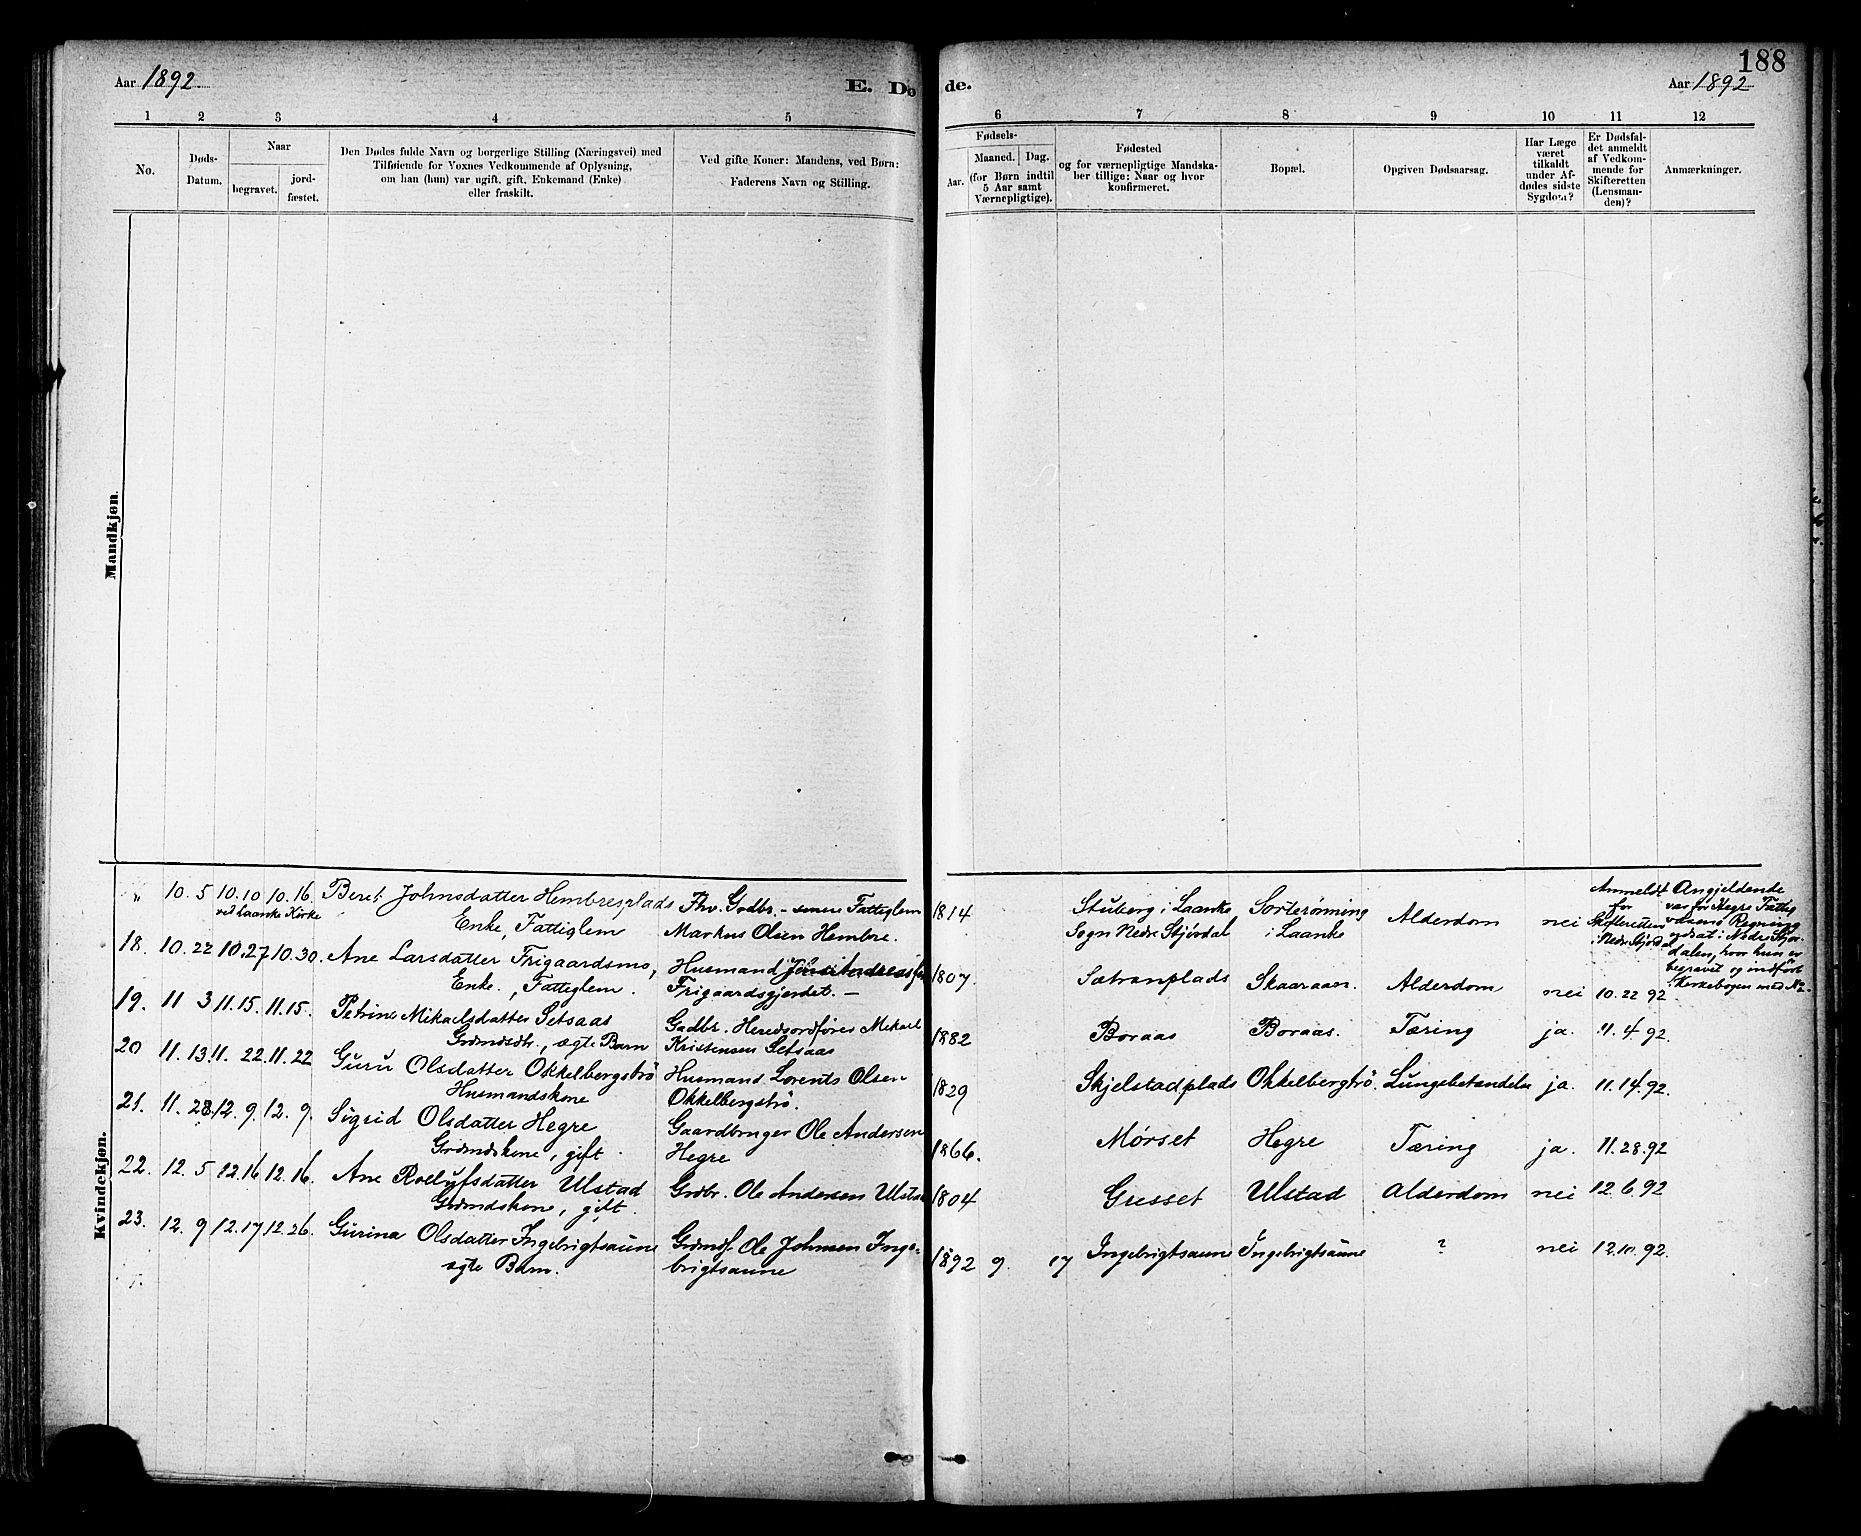 188
Aar 1892
E. Dø de.
Aar 1892
1 2 3 4 5 6 7 8 9 10 11 12
No.
Døds-
Datum.
Naar
begravet.
jord-
fæstet.
Den Dødes fulde Navn og borgerlige Stilling (Næringsvei) med
Tilføiende for Voxnes Vedkommende af Oplysning,
om han (hun) var ugift, gift, Enkemand (Enke)
eller fraskilt.
Ved gifte Koner: Mandens, ved Børn:
Faderens Navn og Stilling.
Fødsels-
Aar.
Maaned. Dag.
(for Børn indtil
5 Aar samt
Værnepligtige).
Fødested
og for værnepligtige Mandska-
ber tillige: Naar og hvor
konfirmeret.
Bopæl.
Opgiven Dødsaarsag.
Har Læge
været
tilkaldt
under Af-
dødes sidste
Sygdom?
Er Dødsfal-
det anmeldt
af Vedkom-
mende for
Skifteretten
(Lensman-
den)?
Anmærkninger.
Mandkjøn.
Kvindekjøn.
" 10. 5 10. 10 10. 16. Beret Johnsdatter Hembresplads Fhv. Godbr. - senere Fattiglem 1814 Stuberg i Laanke Sorterønning Alderdom nei Anmeldt
ved Laanke Kirke Enke, Fattiglem Markus Olsen Hembre. Sogn Nedre Stjørdal i Laanke for
Skifteretten
i Nedre Stjørdal
Angjeldende
var for Hegre Fattig
væsens Regning
udsat i Nedre Stjør
dalen, hvor hun er
begravet og indført
i Kirkebogen med No.
18. 10. 22 10. 27 10. 30. Ane Larsdatter Frigaardsmo, Husmand 1807. Satranplads Skaaraan. Alderdom nei 10. 22 92
Enke., Fattiglem. Frigaardsgjerdet. -
19. 11 3 11. 15. 11. 15. Petrine Mikaelsdatter Setsaas Gadbr. Heredsordføres Mekael 1882 Boraas Boraas. Tæring ja. 11. 4 92.
Grdmdsdtr., ægte Barn Kristensen Setsaas
20 11. 13. 11. 22 11. 22 Guru Olsdatter Okkelbergstrø Husmand Lorents Olsen 1829 Skjelstadplads Okkelbergtrø. Lungebetændelse ja. 11. 14 92.
Husmandskone Okkelbergstrø.
21. 11. 28. 12. 9. 12. 9. Sigrid Olsdatter Hegre Gaardbruger Ole Andersen 1866. Mørset Hegre Tæring ja. 11. 28. 92
Grdmdskone, gift. Hegre
22. 12. 5 12. 16 12. 16. Ane Roelufsdatter Ulstad Grdbr. Ole Andersen Ulstad 1804 Gresset Ulstad Alderdom nei 12. 6. 92
Grdmdskone, gift.
23. 12. 9 12. 17 12. 26. Gurina Olsdatter Ingebrigtsaune Grdmd. Ole Johnsen Inge- 1892 9. 17 Ingebrigtsaune Ingebrigtsaune ? nei 12. 10. 92.
ægte Barn. brigtsaune